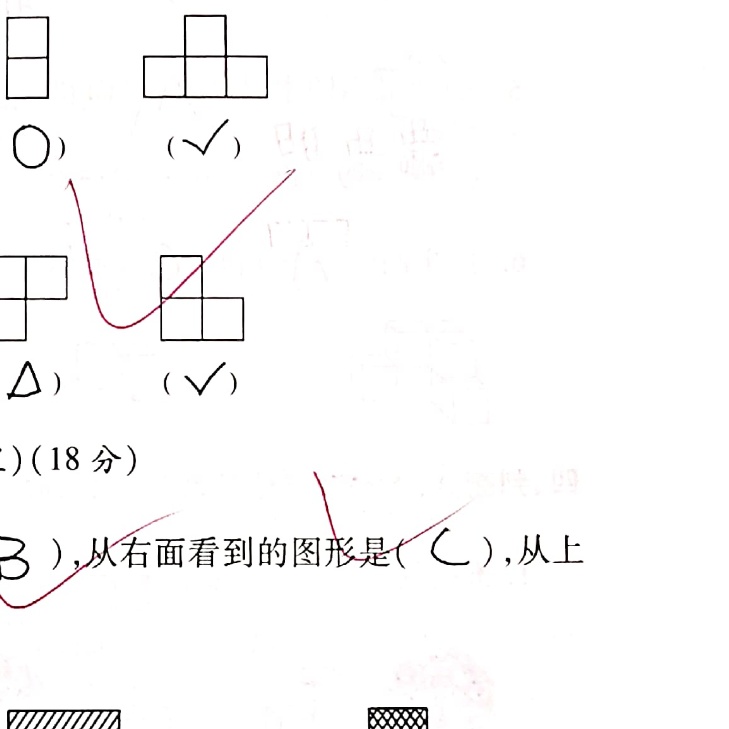 ○) (✓)
△) (✓)
)(18 分)
B ),从右面看到的图形是( C ),从上